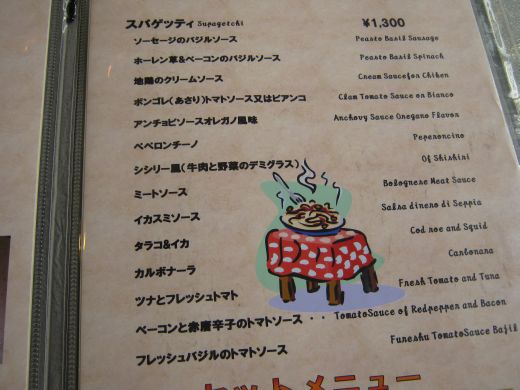 スパゲッティ Supagetchi ¥1,300
ソーセージのバジルソース Peasto Basil Sausage
ホーレン草&ベーコンのバジルソース Peasto Basil Spinach
地鶏のクリームソース Cneam Saucefon Chiken
ボンゴレ(あさり)トマトソース又はビアンコ Clam Tomato Sauce on Bianco
アンチョビソースオレガノ風味 Anchovy Sauce Onegano Flavon
ペペロンチーノ Pepenoncino
シシリー風(牛肉と野菜のデミグラス) Of Shishini
ミートソース Bolognese Meat Sauce
イカスミソース Salsa dineno di Seppia
タラコ&イカ Cod noe and Squid
カルボナーラ Canbonana
ツナとフレッシュトマト Fnesh Tomato and Tuna
ベーコンと赤唐辛子のトマトソース・・ TomatoSauce of Redpeppen and Bacon
フレッシュバジルのトマトソース Funeshu TomatoSauce Bajil
セットメニュー